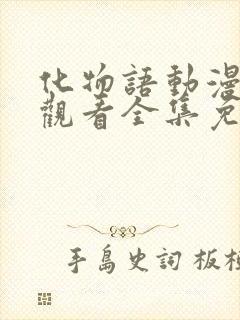 化物語動漫
觀看全集免
手島史詞 板